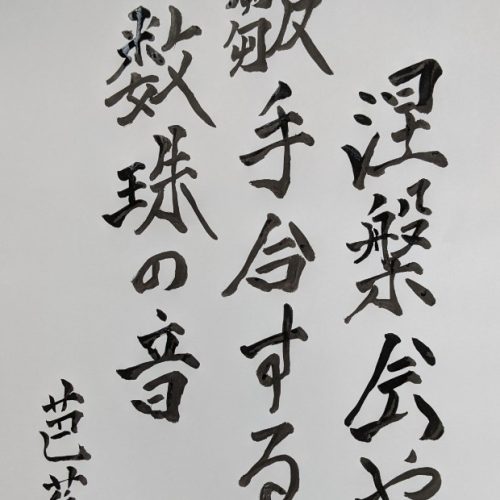 涅槃会や
皺手合する
数珠の音
芭蕉